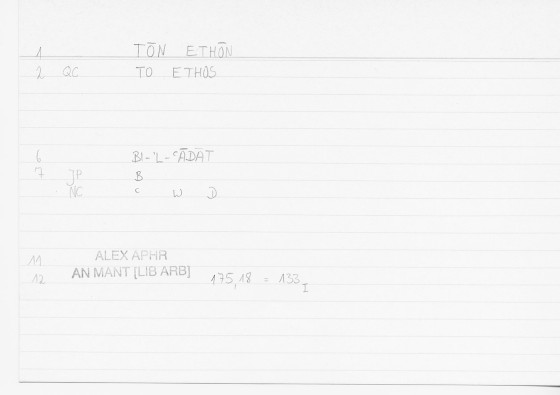 1 TŌN ETHŌN
2 QC TO ETHOS
6 BI-'L-ʿĀDĀT
7 JP B
NC ʿ W D
11 ALEX APHR
12 AN MANT [LIB ARB] 175,18 = 133 I